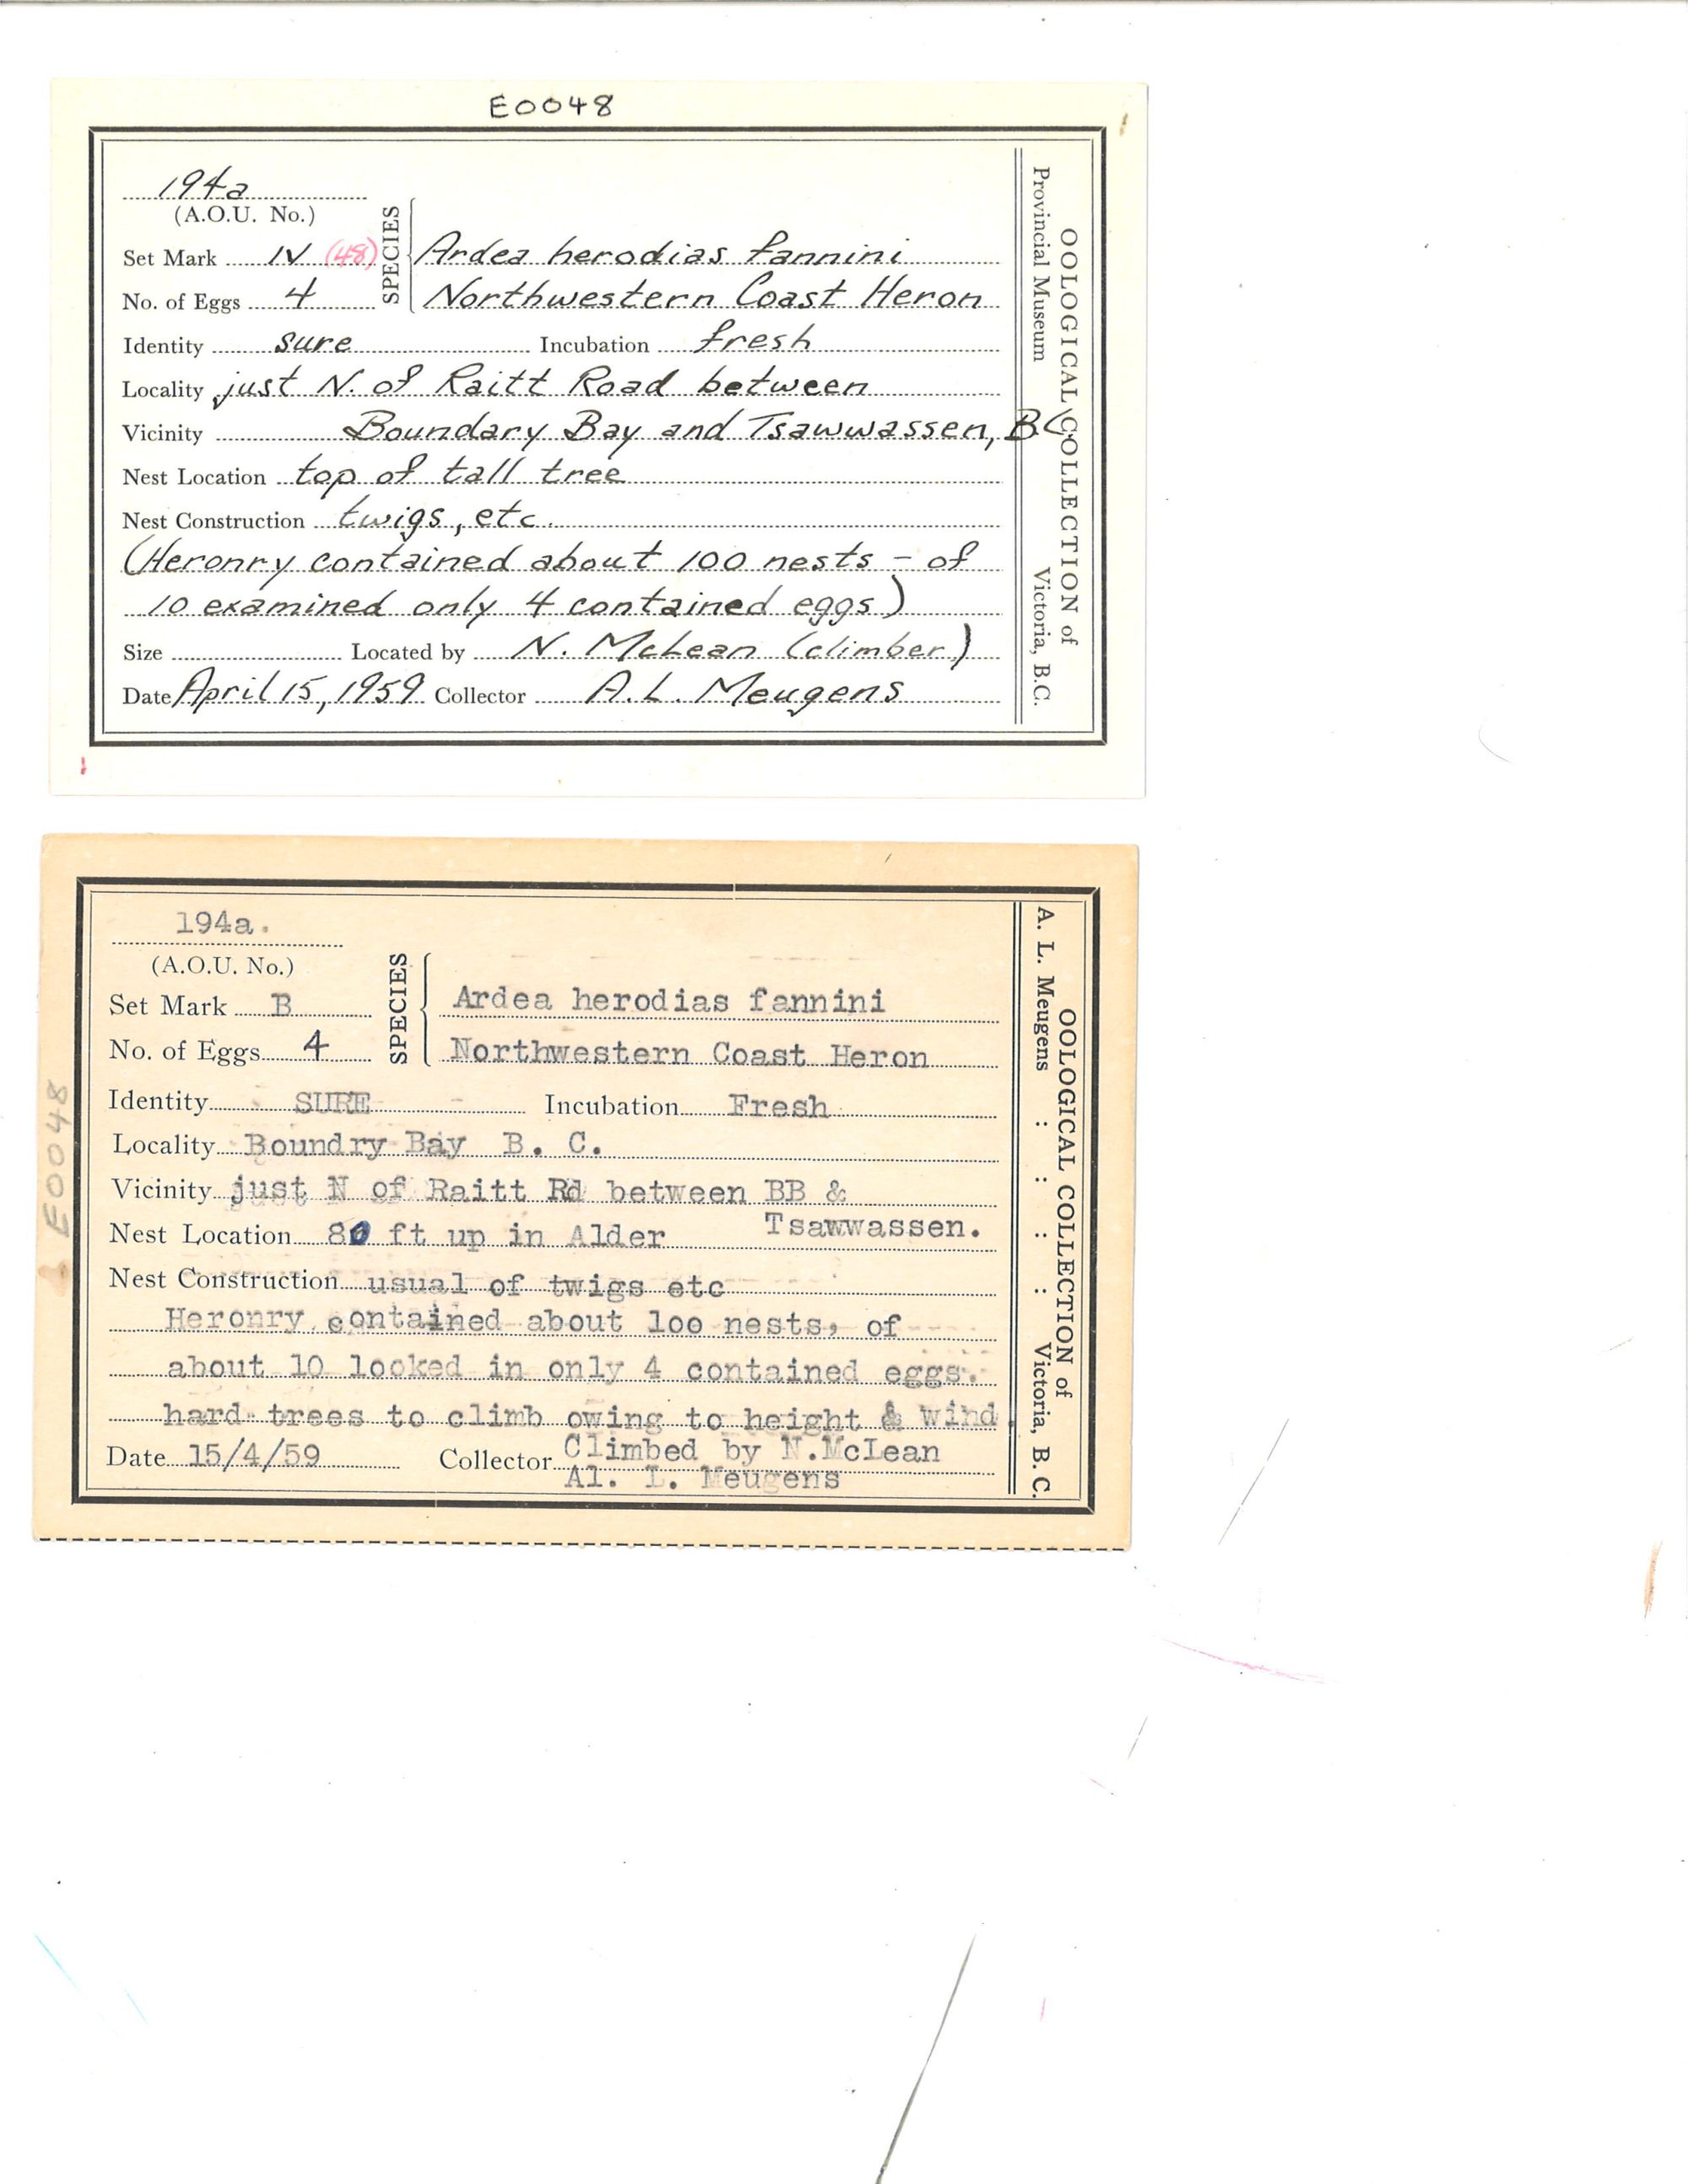 E0048
194a
(A.O.U. No.)
SPECIES
Set Mark IV (48) Ardea herodias fannini
No. of Eggs 4 Northwestern Coast Heron
Identity sure Incubation fresh
Locality just N. of Raitt Road between
Vicinity Boundary Bay and Tsawwassen, BC
Nest Location top of tall tree
Nest Construction twigs, etc.
(Heronry contained about 100 nests - of
10 examined only 4 contained eggs)
Size Located by N. McLean (climber)
Date April 15, 1959 Collector A.L. Meugens
OOLOGICAL COLLECTION of
Provincial Museum Victoria, B.C.
194a.
(A.O.U. No.)
SPECIES
Set Mark B Ardea herodias fannini
No. of Eggs 4 Northwestern Coast Heron
Identity SURE Incubation Fresh
Locality Boundry Bay B. C.
Vicinity just N of Raitt Rd between BB &
Tsawwassen.
Nest Location 80 ft up in Alder
Nest Construction usual of twigs etc
Heronry contained about 100 nests, of
about 10 looked in only 4 contained eggs.
hard trees to climb owing to height & wind
Climbed by N.McLean
Date 15/4/59 Collector Al. L. Meugens
OOLOGICAL COLLECTION of
A. L. Meugens : : : : Victoria, B. C.
E0048